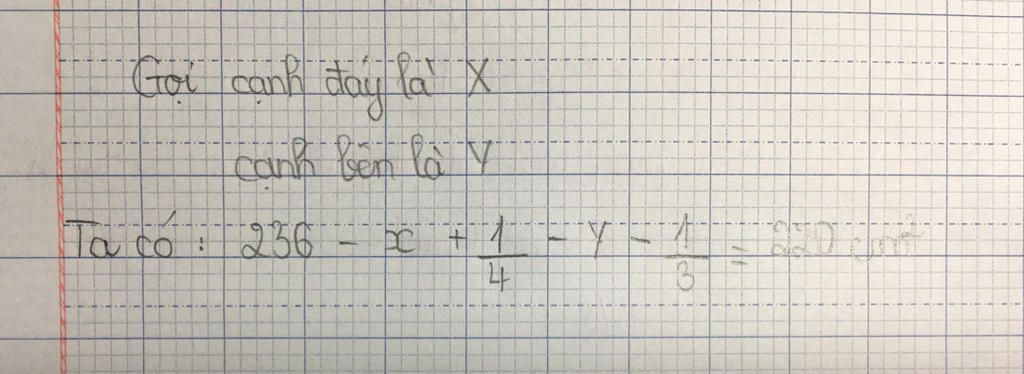 Gọi cạnh đáy là X
cạnh bên là Y
Ta có : 236 - x + 1/4 - Y - 1/3 = 220 cm²